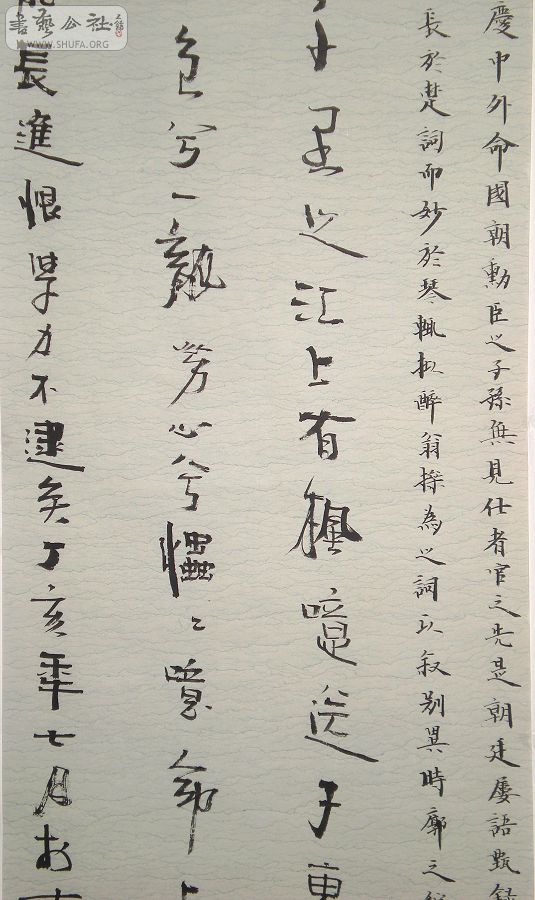 慶中外命國朝勳臣之子孫無見仕者官之先是朝廷屢語甄錄
長於楚詞而妙於琴輒拟醉翁操為之詞以叙别異時廓之
千里之江上有楓噫送子東
兮一龍勞心兮𢥞々噫命
長進恨學力不逮矣丁亥年七月於
書藝公社
WWW.SHUFA.ORG